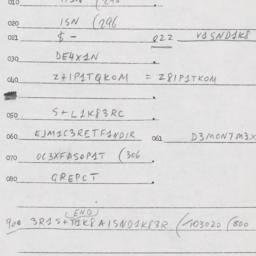 020 ISN (296
021 $- 022 V1SND1K8
030 DE4X1N
040 Z41P1TQKOM = Z8IP1TKOM
050 S+L1K83RC
060 EJM1C3RETF1NDIR 061 D3MON7M3X
070 OC3XFDSOP1T (306
080 GREPCT
END
900 3R1S+T1K8A1SND1K83R (103020 (800